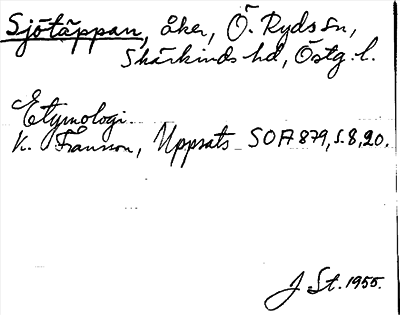 Sjötäppan, åker, Ö. Ryds sn,
Skärkinds hd, Östg. l.
Etymologi.
K. Fransson, Uppsats SOA 879, s. 8, 20.
J St. 1955.